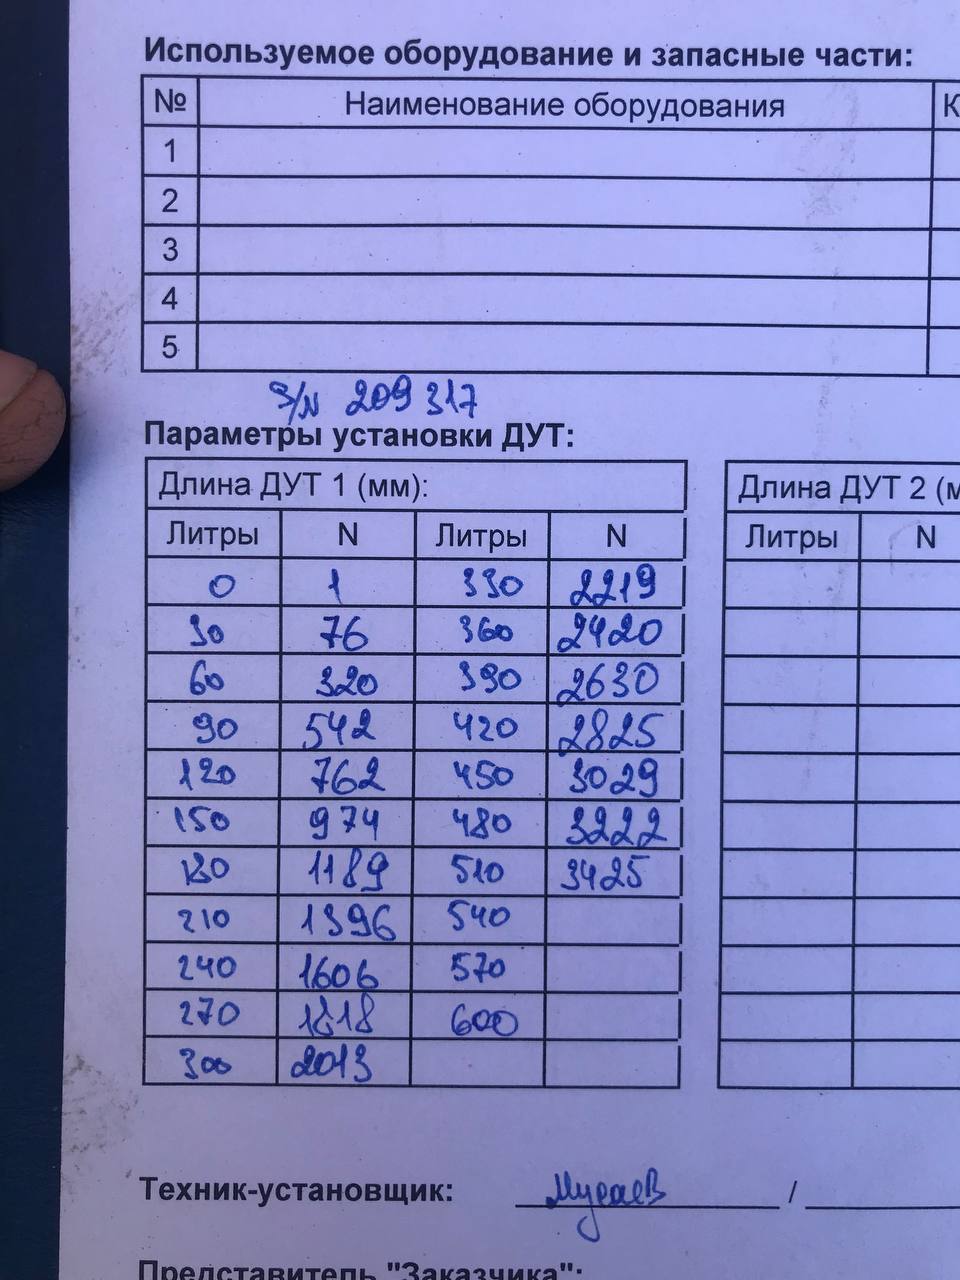 Используемое оборудование и запасные части:
№ Наименование оборудования К
1
2
3
4
5
S/N 209317
Параметры установки ДУТ:
Длина ДУТ 1 (мм): Длина ДУТ 2 (м
Литры N Литры N Литры N
0 1 330 2219
30 76 360 2420
60 320 390 2630
90 542 420 2825
120 762 450 3029
150 974 480 3222
180 1189 510 3425
210 1396 540
240 1606 570
270 1818 600
300 2013
Техник-установщик: /
Представитель "Заказчика":